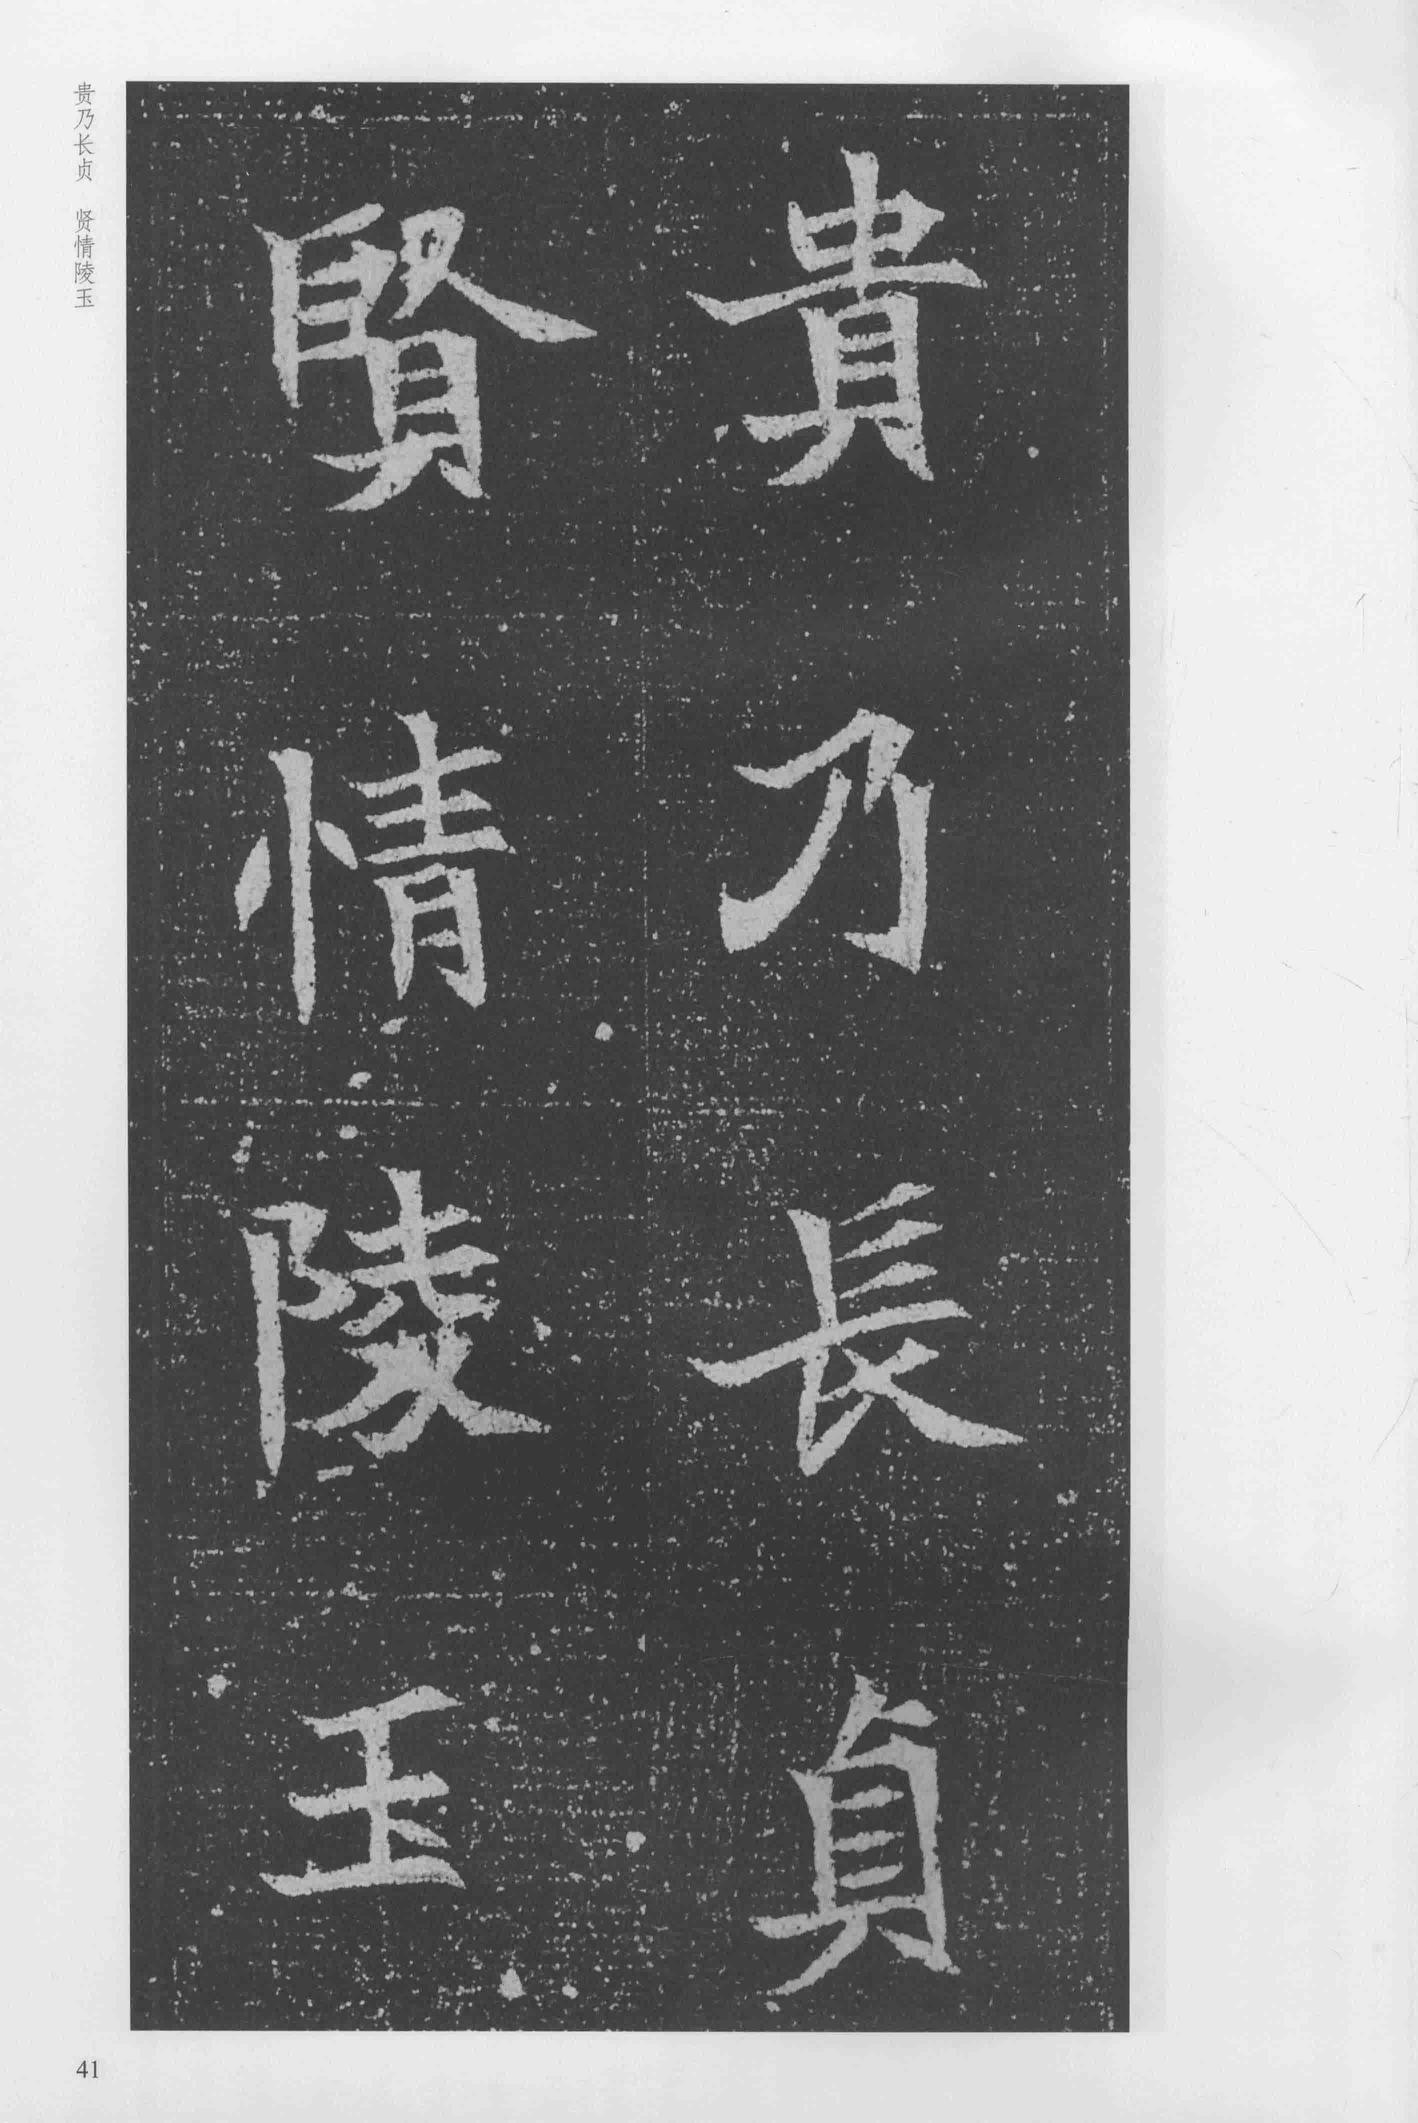 貴乃長貞
賢情陵玉
贵乃长贞　贤情陵玉
41